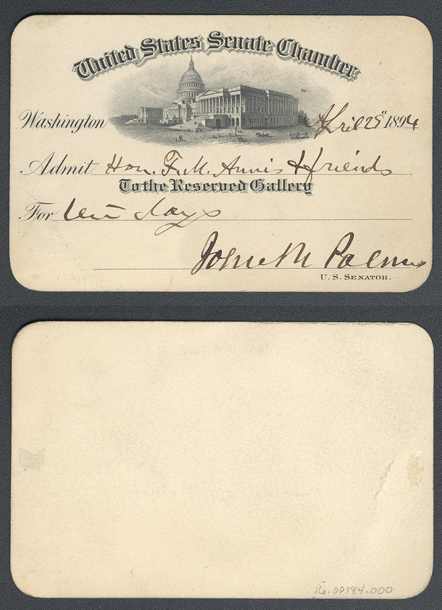 United States Senate Chamber
Washington April 25" 1894
Admit Hon. F. M. Annis & friends
To the Reserved Gallery
For ten days
John M Palmer
U. S. SENATOR.
16.00184.000